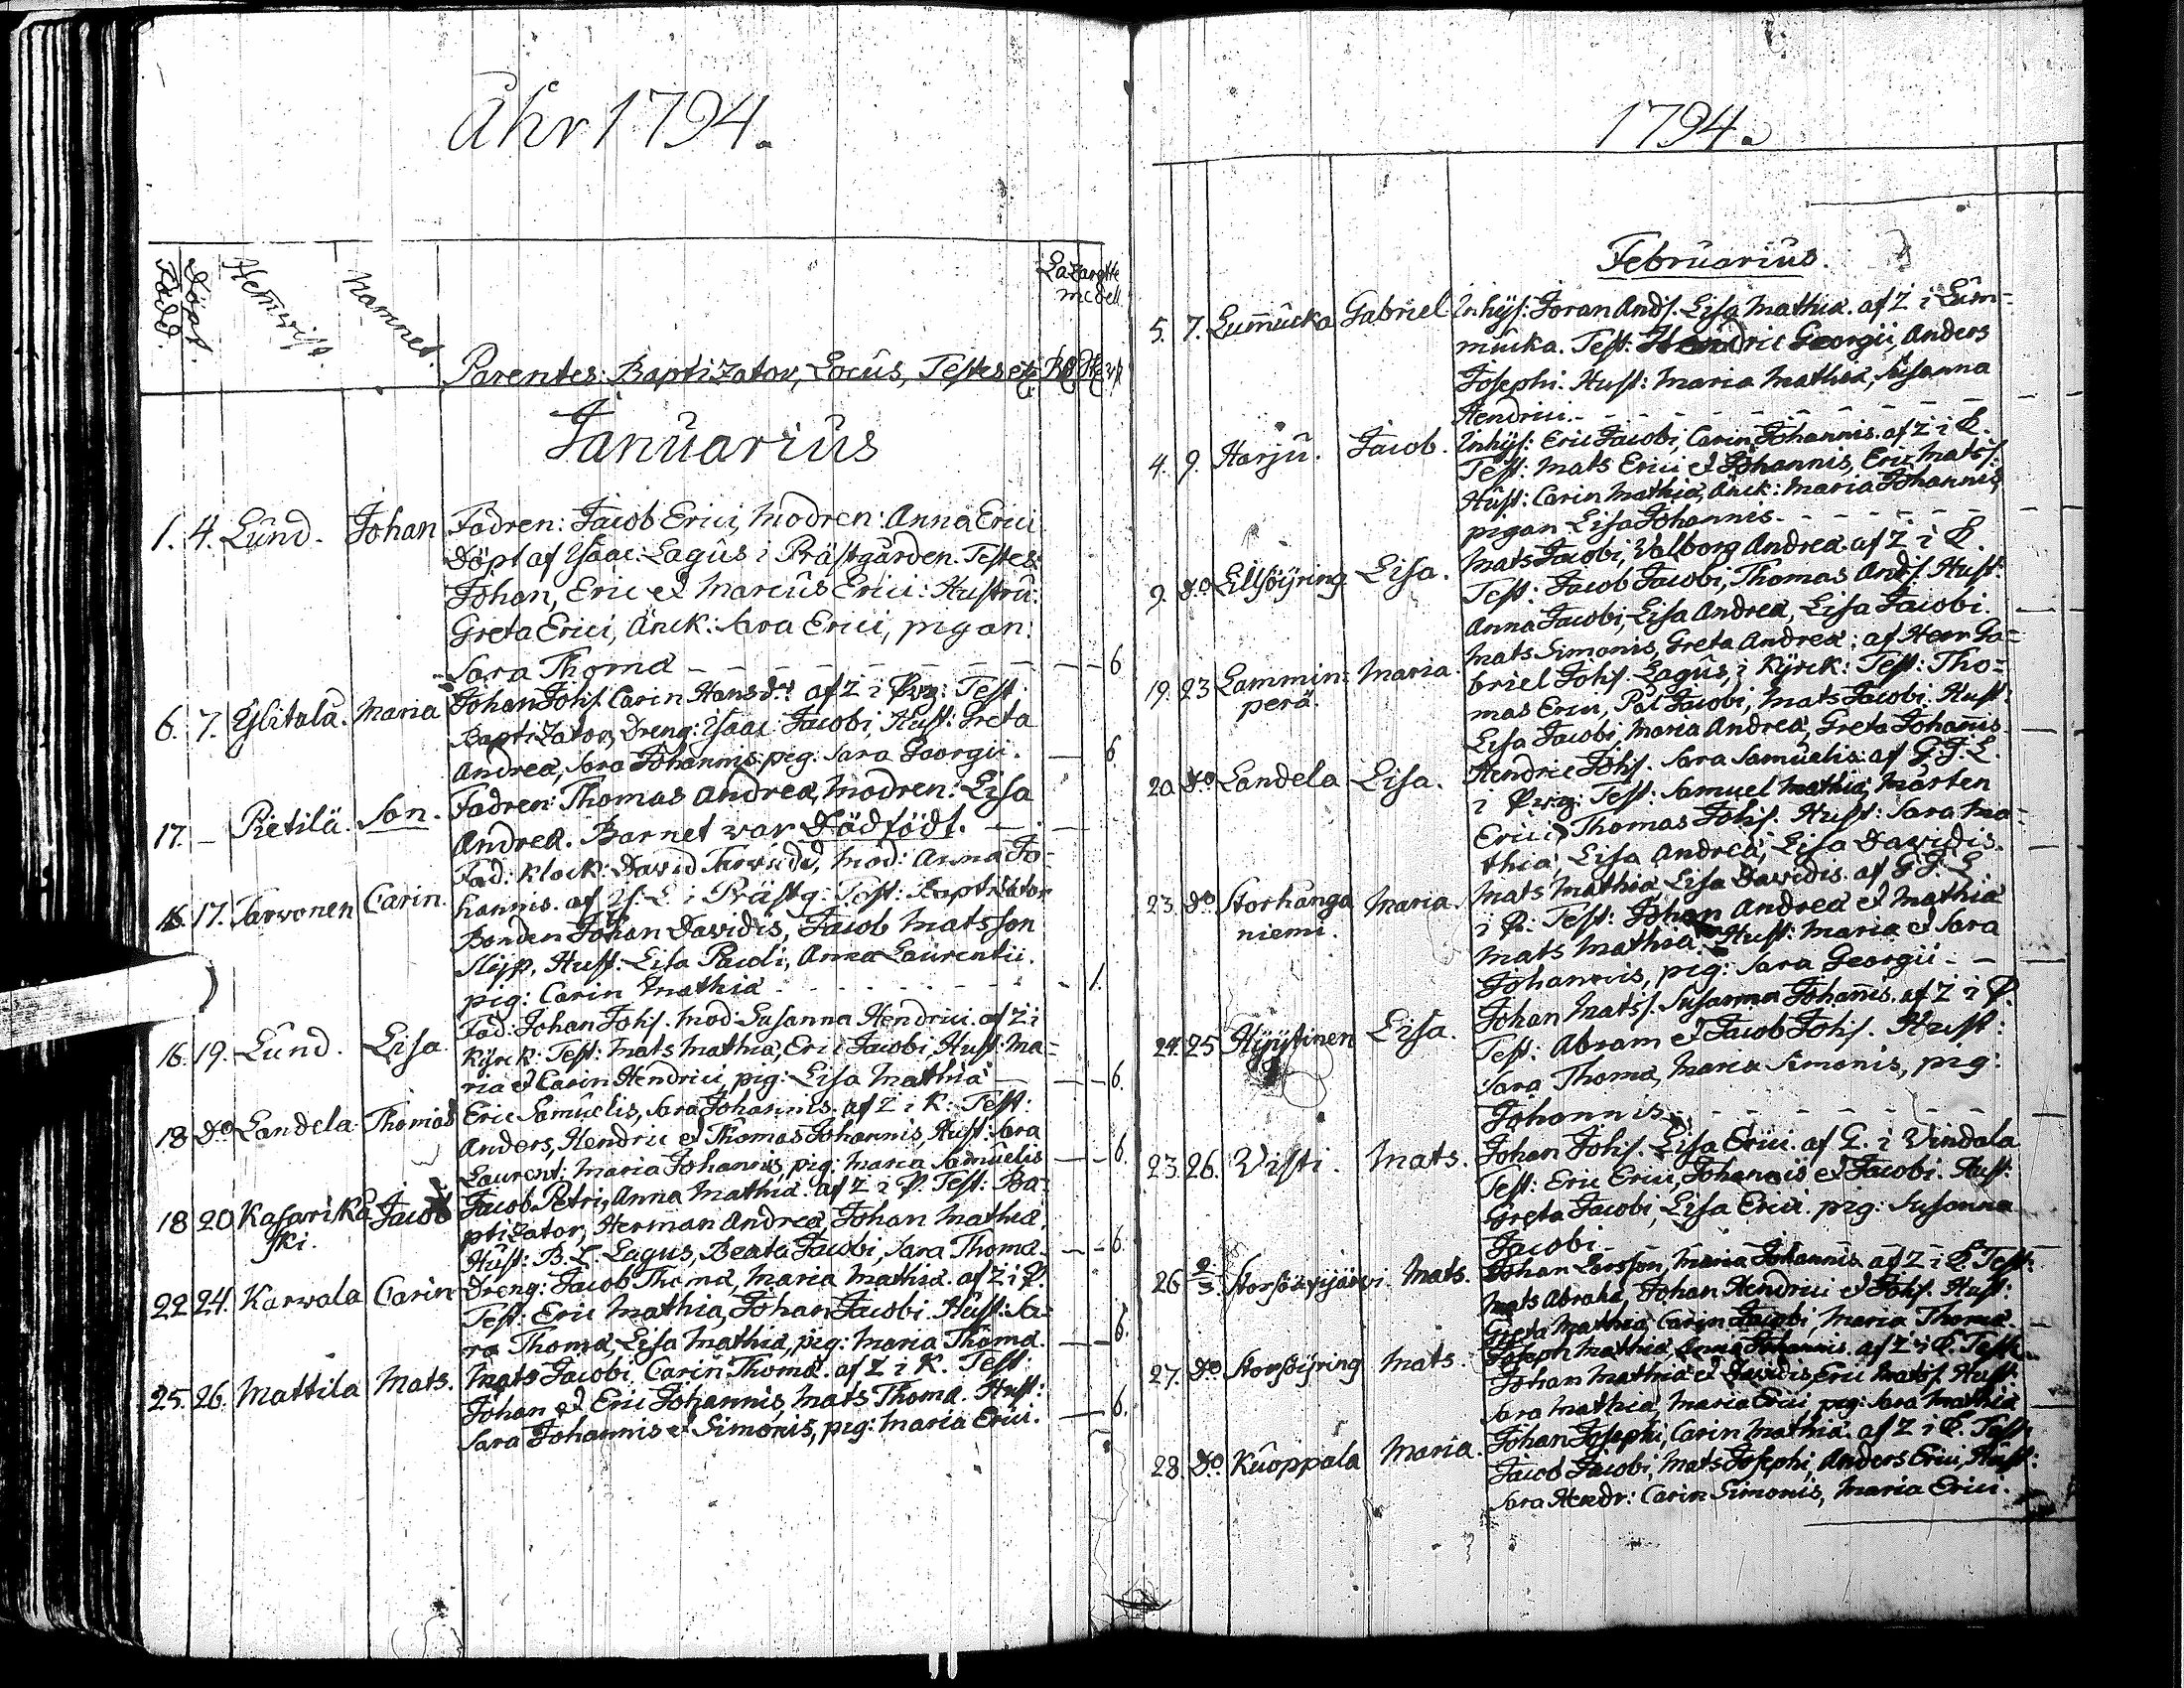 Åhr 1794.
Född.
Döpt.
Hemvist.
Namnet.
Parentes. Baptizator, Locus, Testes etc
Lazaretts
medell
Januarius
1. 4. Lund. Johan Fadren: Jacob Erici, Modren: Anna Erici
Döpt af Isaac Lagus i Prästgården. Testes:
Johan, Eric et Marcus Erici: Hustru:
Greta Erici, Änck: Sara Erici, pigan:
Sara Thomæ - - - - - - - - 6
6. 7. Ylitalå. Maria Johan Johs. Carin Hansdr. af Z i Prg: Test:
Baptizator, Dreng: Isaac Jacobi, Hust: Greta
Andreæ, Sara Johannis. pig: Sara Georgii. — 6
17. - Pietilä. Son. Fadren: Thomas Andreæ, Modren: Lisa
Andreæ. Barnet var Dödfödt. —
16. 17. Tarvonen Carin. Fad: Klock: David Tarvudd, Mod: Anna Jo-
hannis. af Is. L. i Prästg: Test: Baptizator
Bonden Johan Davidis, Jacob Matsson
Slijp, Hust: Lisa Pauli, Anna Laurentii.
pig: Carin Mathiæ - - - - - - 1.
16. 19. Lund. Lisa. Fad: Johan Johs. Mod: Susanna Hendrici. af Z i
Kyrck: Test: Mats Mathiæ, Eric Jacobi, Hust: Ma-
ria et Carin Hendrici, pig: Lisa Mathiæ — 6.
18 Do Landela Thomas Eric Samuelis, Sara Johannis. af Z i K: Test:
Anders, Hendric et Thomas Johannis, Hust: Sara
Laurent: Maria Johannis, pig: Maria Samuelis — 6.
18 20 Kasariko Jacob Jacob Petri, Anna Mathiæ. af Z i P. Test: Ba-
ski. ptizator, Herman Andreæ, Johan Mathiæ,
Hust: B. C. Lagus, Beata Jacobi, Sara Thomæ. — 6.
22 24. Karvala Carin Dreng: Jacob Thomæ, Maria Mathiæ. af Z i P.
Test: Eric Mathiæ, Johan Jacobi. Hust: Sa-
ra Thomæ, Lisa Mathiæ, pig: Maria Thomæ. — 6.
25. 26. Mattila Mats. Mats Jacobi. Carin Thomæ. af Z i K. Test:
Johan et Eric Johannis, Mats Thomæ. Hust:
Sara Johannis et Simonis, pig: Maria Erici. — 6.
1794.
Februarius.
5. 7. Lumucka Gabriel Inhijs: Joran Ands. Lisa Mathiæ. af Z i Lum-
mucka. Test: Hendric Georgii, Anders
Josephi. Hust: Maria Mathiæ, Susanna
Hendrici. - - - - - -
4. 9. Harju. Jacob. Inhijs: Eric Jacobi, Carin Johannis. af Z i P.
Test: Mats Erici et Johannis, Eric Mats s.
Hust: Carin Mathiæ, Änck: Maria Johannis,
pigan Lisa Johannis. - - - - - -
9. Do Lillsöyring Lisa. Mats Jacobi, Walborg Andreæ. af Z i P.
Test: Jacob Jacobi, Thomas Ands. Hust:
Anna Jacobi, Lisa Andreæ, Lisa Jacobi. —
19. 23 Lammin- Maria. Mats Simonis, Greta Andreæ: af Herr Ga-
perä. briel Johs. Lagus, i Kyrck: Test: Tho-
mas Erici, Pål Jacobi, Mats Jacobi. Hust:
Lisa Jacobi, Maria Andreæ, Greta Johannis. —
20 Do Landela Lisa. Hendric Johs. Sara Samuelis: af G. J. L.
i Prg: Test: Samuel Mathiæ, Mårten
Erici, Thomas Johs. Hust: Sara Ma-
thiæ, Lisa Andreæ, Lisa Davidis. —
23. Do Storhånga Maria. Mats Mathiæ, Lisa Davidis. af G. J. L.
niemi. i P. Test: Johan Andreæ et Mathiæ
Mats Mathiæ. Hust: Maria et Sara
Johannis, pig: Sara Georgii - -
24. 25 Hyytinen Lisa. Johan Mats s. Susanna Johannis. af Z i P.
Test: Abram et Jacob Johs. Hust:
Sara Thomæ, Maria Simonis, pig:
Johannis - - - - - -
23. 26. Visti. Mats. Johan Johs. Lisa Erici. af G. i Vindala
Test: Eric Erici, Johannis et Jacobi. Hust:
Greta Jacobi, Lisa Erici. pig: Susanna
Jacobi - - - - - -
26 2/3 Mats. Johan Larsson, Maria Johannis af Z i P. Test:
Mats Abrahæ, Johan Hendrici et Johs. Hust:
Greta Mathiæ Carin Jacobi, Maria Thomæ.
27. Do Storsöyring Mats. Joseph Mathiæ Anna Johannis. af Z i P. Test:
Johan Mathiæ et Davidis, Eric Mats s. Hust:
Sara Mathiæ, Maria Erici pig: Sara Mathiæ
28. Do. Kuoppala Maria. Johan Josephi, Carin Mathiæ. af Z i P. Test:
Jacob Jacobi, Mats Josephi, Anders Erici, Hust:
Sara Hendr: Carin Simonis, Maria Erici.